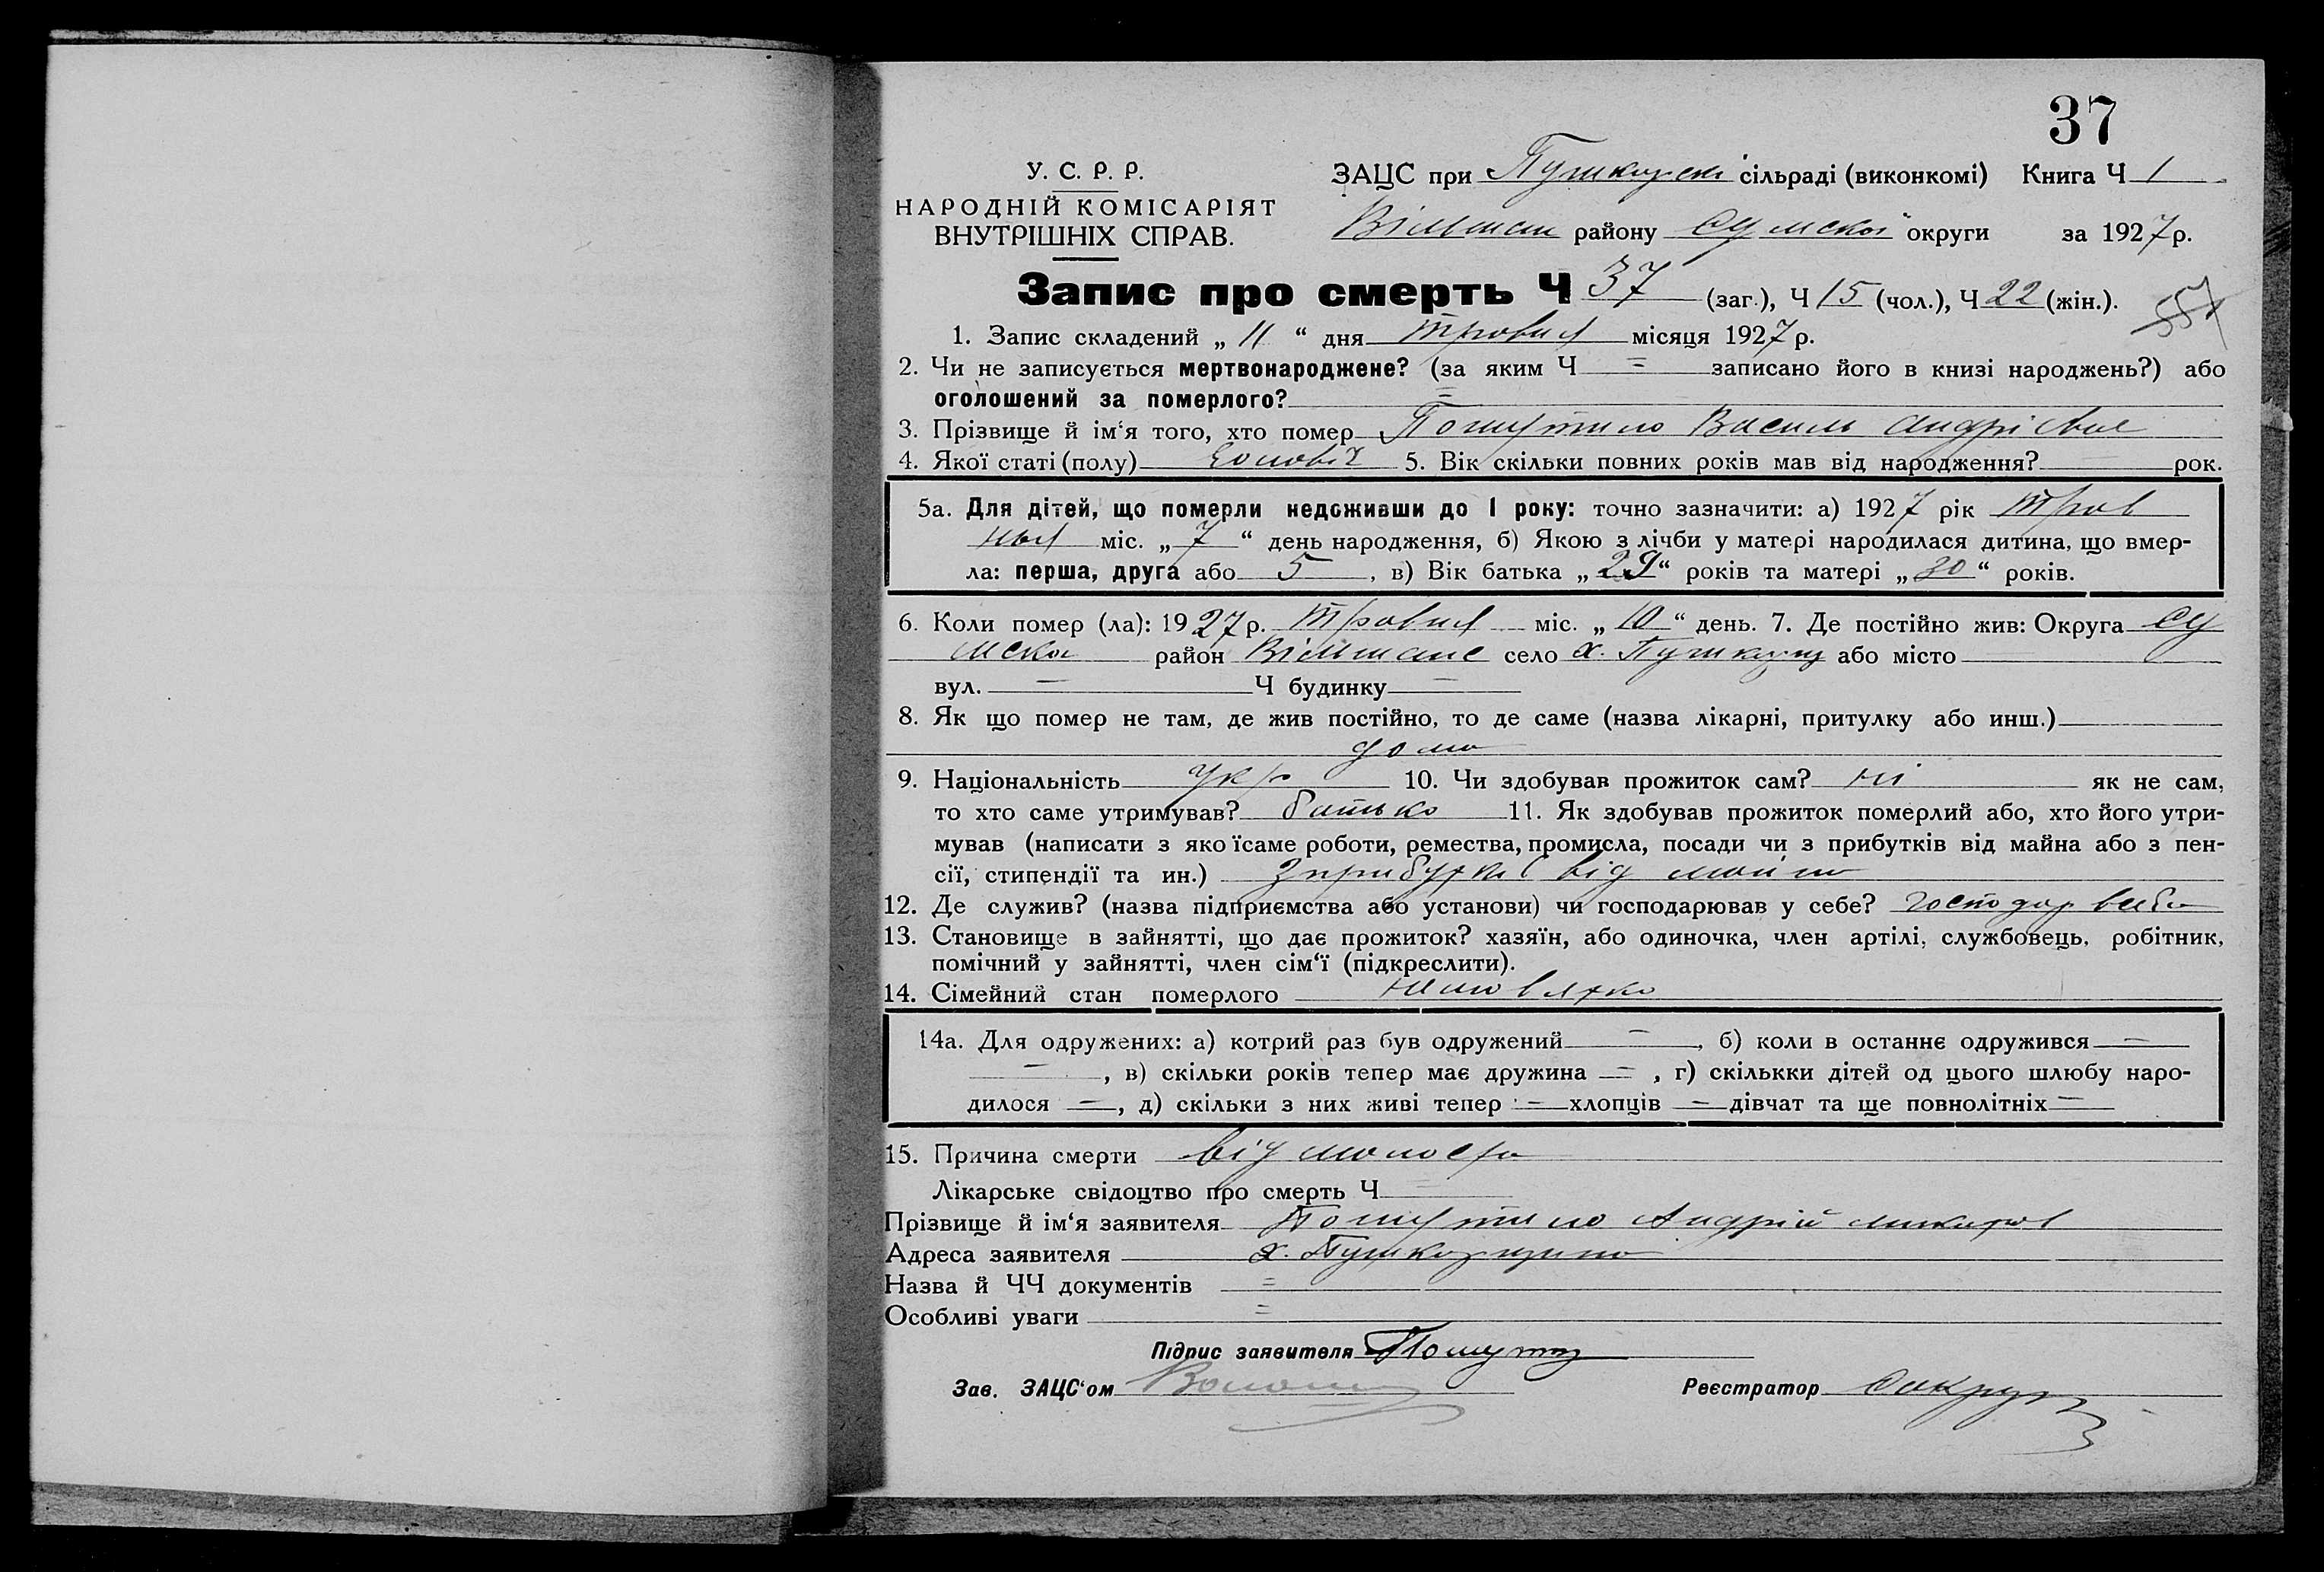 37
У. С. Р. Р.
НАРОДНІЙ КОМІСАРІЯТ
ВНУТРІШНІХ СПРАВ.
ЗАЦС при Пушкарскі сільраді (виконкомі) Книга Ч 1
Вільшан району Сумскоі округи за 1927 р.
Запис про смерть Ч 37 (заг.), Ч 15 (чол.), Ч 22 (жін.).
1. Запис складений „ 11 “ дня травня місяця 1927 р.
2. Чи не записується мертвонароджене? (за яким Ч = записано його в книзі народжень?) або
оголошений за померлого? =
3. Прізвище й ім‘я того, хто помер Василь Андрієвич
4. Якої статі (полу) Чоловіч 5. Вік скільки повних років мав від народження? — рок.
5а. Для дітей, що померли недоживши до 1 року: точно зазначити: а) 1927 рік Трав
ньл міс. „ 7 “ день народження, б) Якою з лічби у матері народилася дитина, що вмер-
ла: перша, друга або 5 , в) Вік батька „ 29 “ років та матері „ 30 “ років.
6. Коли помер (ла): 1927 р. травня міс. „ 10 “ день. 7. Де постійно жив: Округа Су
мска район Вільшане село х. Пушкарщ або місто
вул. — Ч будинку —
8. Як що помер не там, де жив постійно, то де саме (назва лікарні, притулку або инш.)
дома
9. Національність укр 10. Чи здобував прожиток сам? ні як не сам,
то хто саме утримував? батько 11. Як здобував прожиток померлий або, хто його утри-
мував (написати з яко їсаме роботи, ремества, промисла, посади чи з прибутків від майна або з пен-
сії, стипендії та ин.) З прибутків від майна
12. Де служив? (назва підприємства або установи) чи господарював у себе? господар
13. Становище в зайнятті, що дає прожиток? хазяїн, або одиночка, член артілі, службовець, робітник,
помічний у зайнятті, член сім‘ї (підкреслити).
14. Сімейний стан померлого немовлятко
14а. Для одружених: а) котрий раз був одружений — , б) коли в останнє одружився —
— , в) скільки років тепер має дружина — , г) скількки дітей од цього шлюбу наро-
дилося — , д) скільки з них живі тепер — хлопців — дівчат та ще повнолітніх —
15. Причина смерти від
Лікарське свідоцтво про смерть Ч —
Прізвище й ім‘я заявителя Андрій
Адреса заявителя х. Пушкарщина
Назва й ЧЧ документів =
Особливі уваги =
Підпис заявителя
Зав. ЗАЦС‘ом
Реєстратор